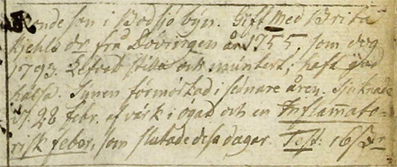 Bonde son i Bodsjö byn. Gift med Brita
Kjehls dr från Dövingen år 1755, som dog
1793. Lefvat stilla och nüntert, haft god
hälsa. Synen förmörkad i senare åren. Sjuknade
d. 28 febr. af värk i ögat och en Inflammato-
risk feber, som slutade dess dagar. Test. 16 s